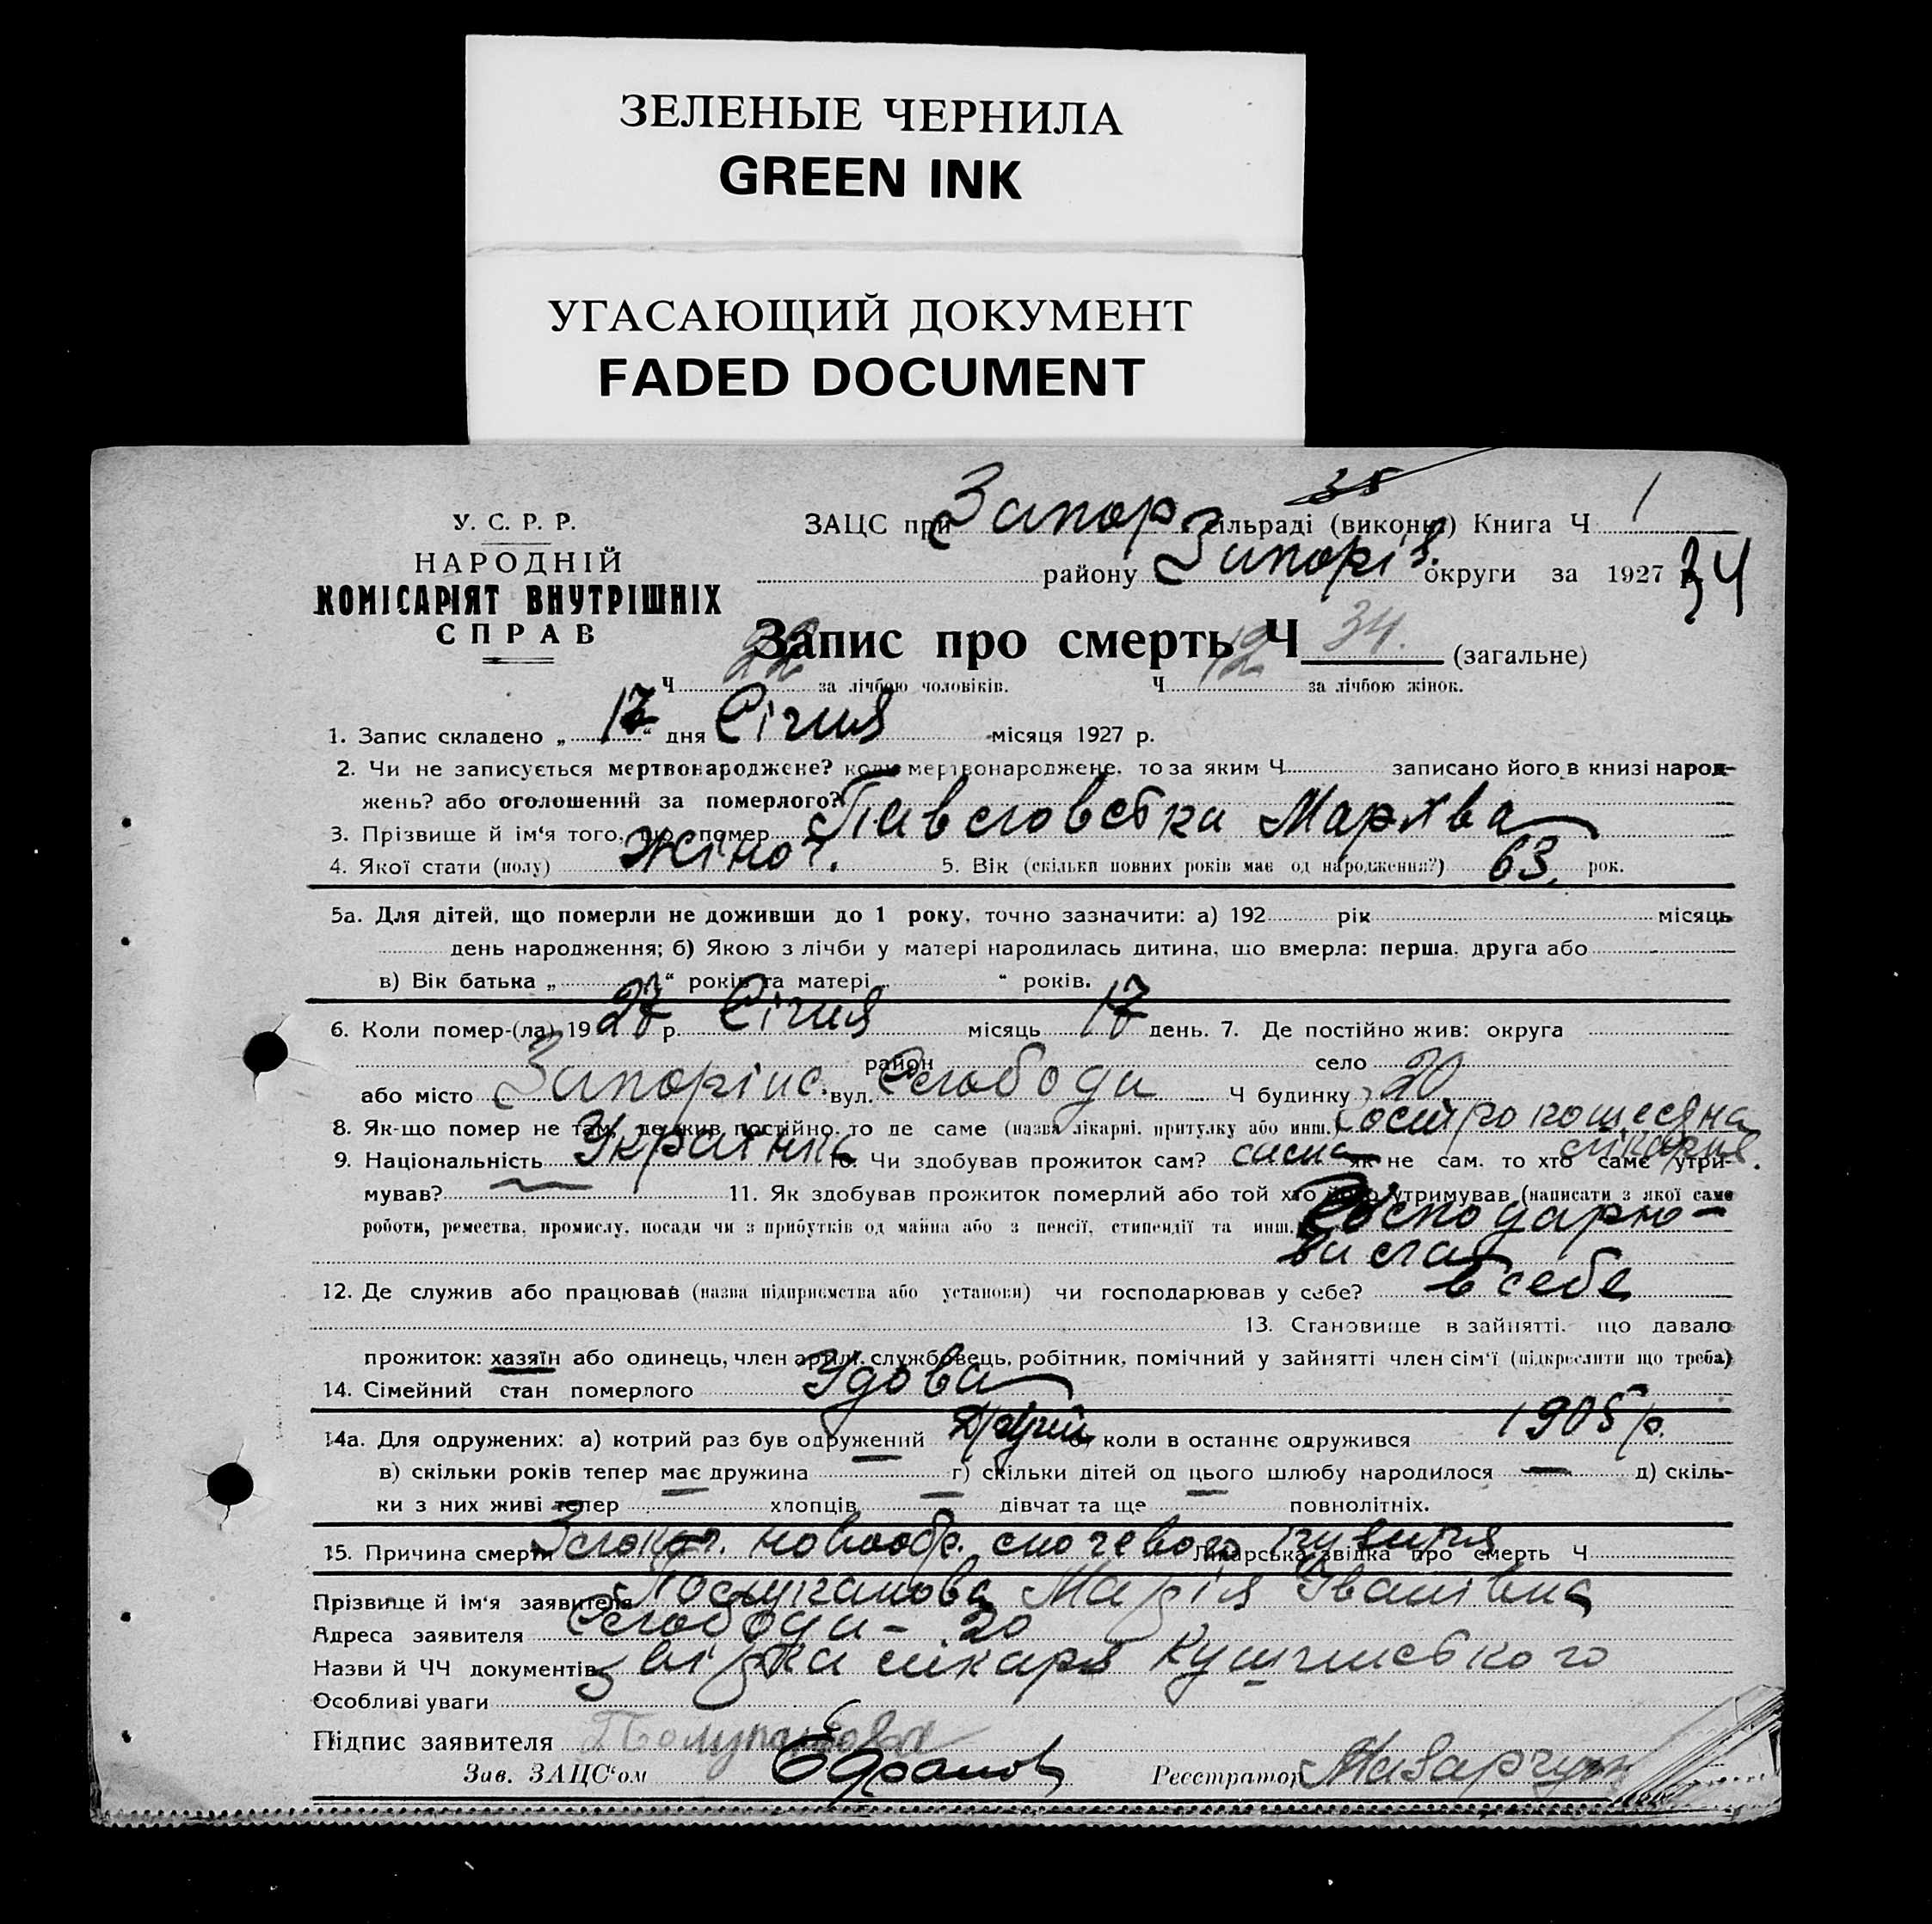 ЗЕЛЕНЫЕ ЧЕРНИЛА
GREEN INK
УГАСАЮЩИЙ ДОКУМЕНТ
FADED DOCUMENT
У. С. Р. Р.
НАРОДНІЙ
КОМІСАРІЯТ ВНУТРІШНІХ
СПРАВ
35
ЗАЦС при Запор сільраді (виконк) Книга Ч 1
району Запоріз. округи за 1927 р 34
Запис про смерть Ч 34. (загальне)
Ч 22 за лічбою чоловіків. Ч 12 за лічбою жінок.
1. Запис складено „17“ дня Січня місяця 1927 р.
2. Чи не записується мертвонароджене? коли мертвонароджене, то за яким Ч записано його в книзі народ-
жень? або оголошений за померлого?
3. Прізвище й ім‘я того, що помер Павловська Мархва
4. Якої стати (полу) Жіноч. 5. Вік (скільки повних років має од народження?) 63. рок.
5а. Для дітей, що померли не доживши до 1 року, точно зазначити: а) 192 рік місяць
день народження; б) Якою з лічби у матері народилась дитина, що вмерла: перша, друга або
в) Вік батька „ “ років та матері „ “ років.
6. Коли помер-(ла) 1927 р. Січня місяць 17 день. 7. Де постійно жив: округа
район село
або місто Запоріж. вул. Слобода Ч будинку 20
8. Як-що помер не там, де жив постійно, то де саме (назва лікарні, притулку або инш.)
лікарня.
9. Національність Українка 10. Чи здобував прожиток сам? сама як не сам, то хто саме утри-
мував? 11. Як здобував прожиток померлий або той хто його утримував (написати з якої саме
роботи, ремества, промислу, посади чи з прибутків од майна або з пенсії, стипендії та инш. Господарю-
вала
12. Де служив або працював (назва підприємства або установи) чи господарював у себе? в себе
13. Становище в зайнятті, що давало
прожиток: хазяїн або одинець, член артілі, службовець, робітник, помічний у зайнятті член сім‘ї (підкреслити що треба)
14. Сімейний стан померлого Удова
14а. Для одружених: а) котрий раз був одружений другий б) коли в останнє одружився 1905 р.
в) скільки років тепер має дружина г) скільки дітей од цього шлюбу народилося — д) скіль-
ки з них живі тепер хлопців дівчат та ще повнолітніх.
15. Причина смерти Злокач. новообр. мочевого пузиря Лікарська звідка про смерть Ч
Прізвище й ім‘я заявителя Марія Іванівна
Адреса заявителя Слобода – 20
Назви й ЧЧ документів звідка лікаря
Особливі уваги
Підпис заявителя
Зав. ЗАЦС‘ом
Реєстратор